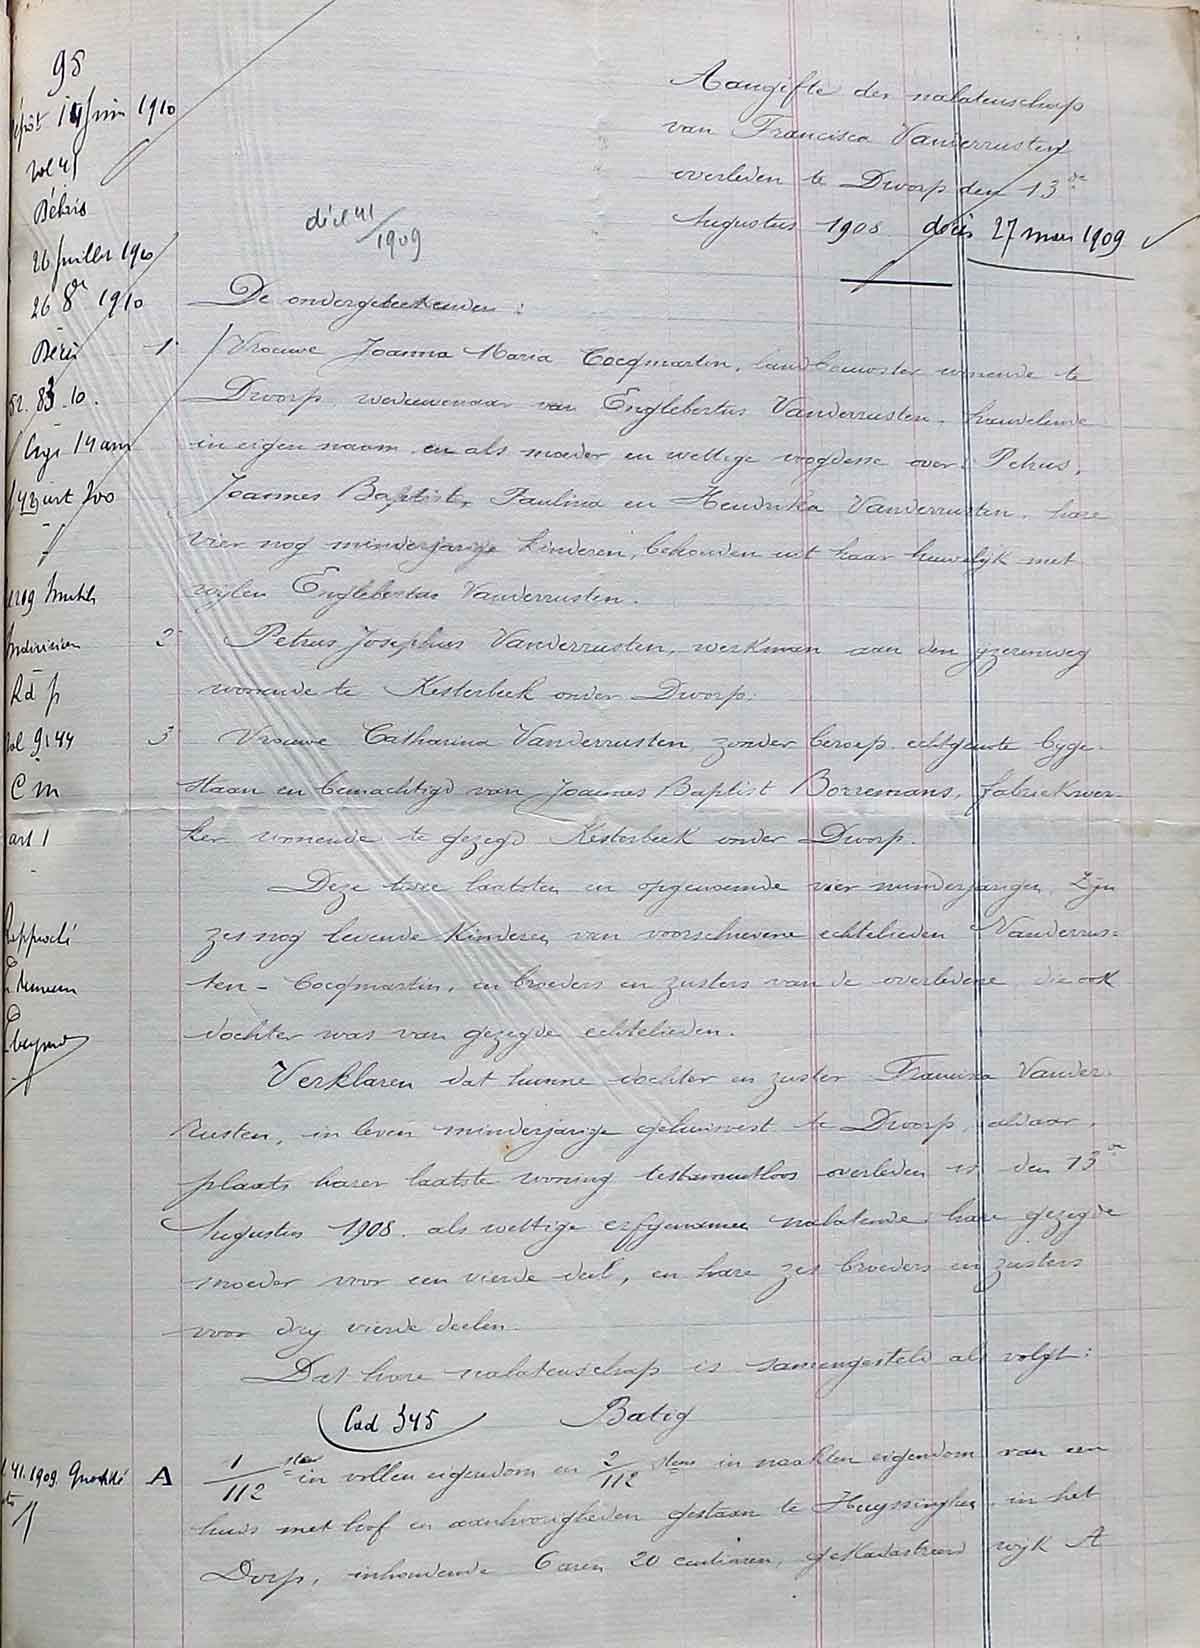 95
Aangifte der nalatenschap
van Francisca Vanderrusten
overleden te Dworp den 13de
Augustus 1908 décès 27 mars 1909
dépôt 14 Juin 1910
vol 41
Débris
26 Juillet 1910
26 8re 1910
83.10.
14 ans
décl 41/1909
De ondergeteekenden:
1 Vrouwe Joanna Maria Cocqmartin, landbouwster wonende te
Dworp weduwenaar van Englebertus Vanderrusten, handelende
in eigen naam en als moeder en wettige voogdesse over: Petrus,
Joannes Baptist, Paulina en Hendrika Vanderrusten, hare
vier nog minderjarige kinderen, behouden uit haar huwelijk met
wijlen Englebertus Vanderrusten.
2 Petrus Josephus Vanderrusten, werkman aan den yzerenweg
wonende te Kesterbeek onder Dworp.
3 Vrouwe Catharina Vanderrusten zonder beroep echtgenote byge-
staan en bemachtigd van Joannes Baptist Borremans, fabriekwer-
ker wonende te gezegd Kesterbeek onder Dworp.
art 1
Deze twee laatsten en opgenoemde vier minderjarigen zyn
zes nog levende kinderen van voorschrevene echtelieden Vanderrus-
ten - Cocqmartin, en broeders en zusters van de overledene die ook
dochter was van gezegde echtelieden.
Verklaren dat hunne dochter en zuster Francisca Vander-
rusten, in leven minderjarige gehuisvest te Dworp, aldaar,
plaats harer laatste woning testamentloos overleden is den 13de
Augustus 1908. als wettige erfgenamen nalatende hare gezegde
moeder voor een vierde deel, en hare zes broeders en zusters
voor dry vierde deelen.
Dat hare nalatenschap is samengesteld als volgt:
Cad 345 Batig
41.1909 A 1/112 sten in vollen eigendom en 2/112 stens in naakten eigendom van een
huis met hof en aanhoorigheden gestaan te Huyssinghen in het
Dorp, inhoudende 6 aren 20 centiaren, gekadastreerd wijk A